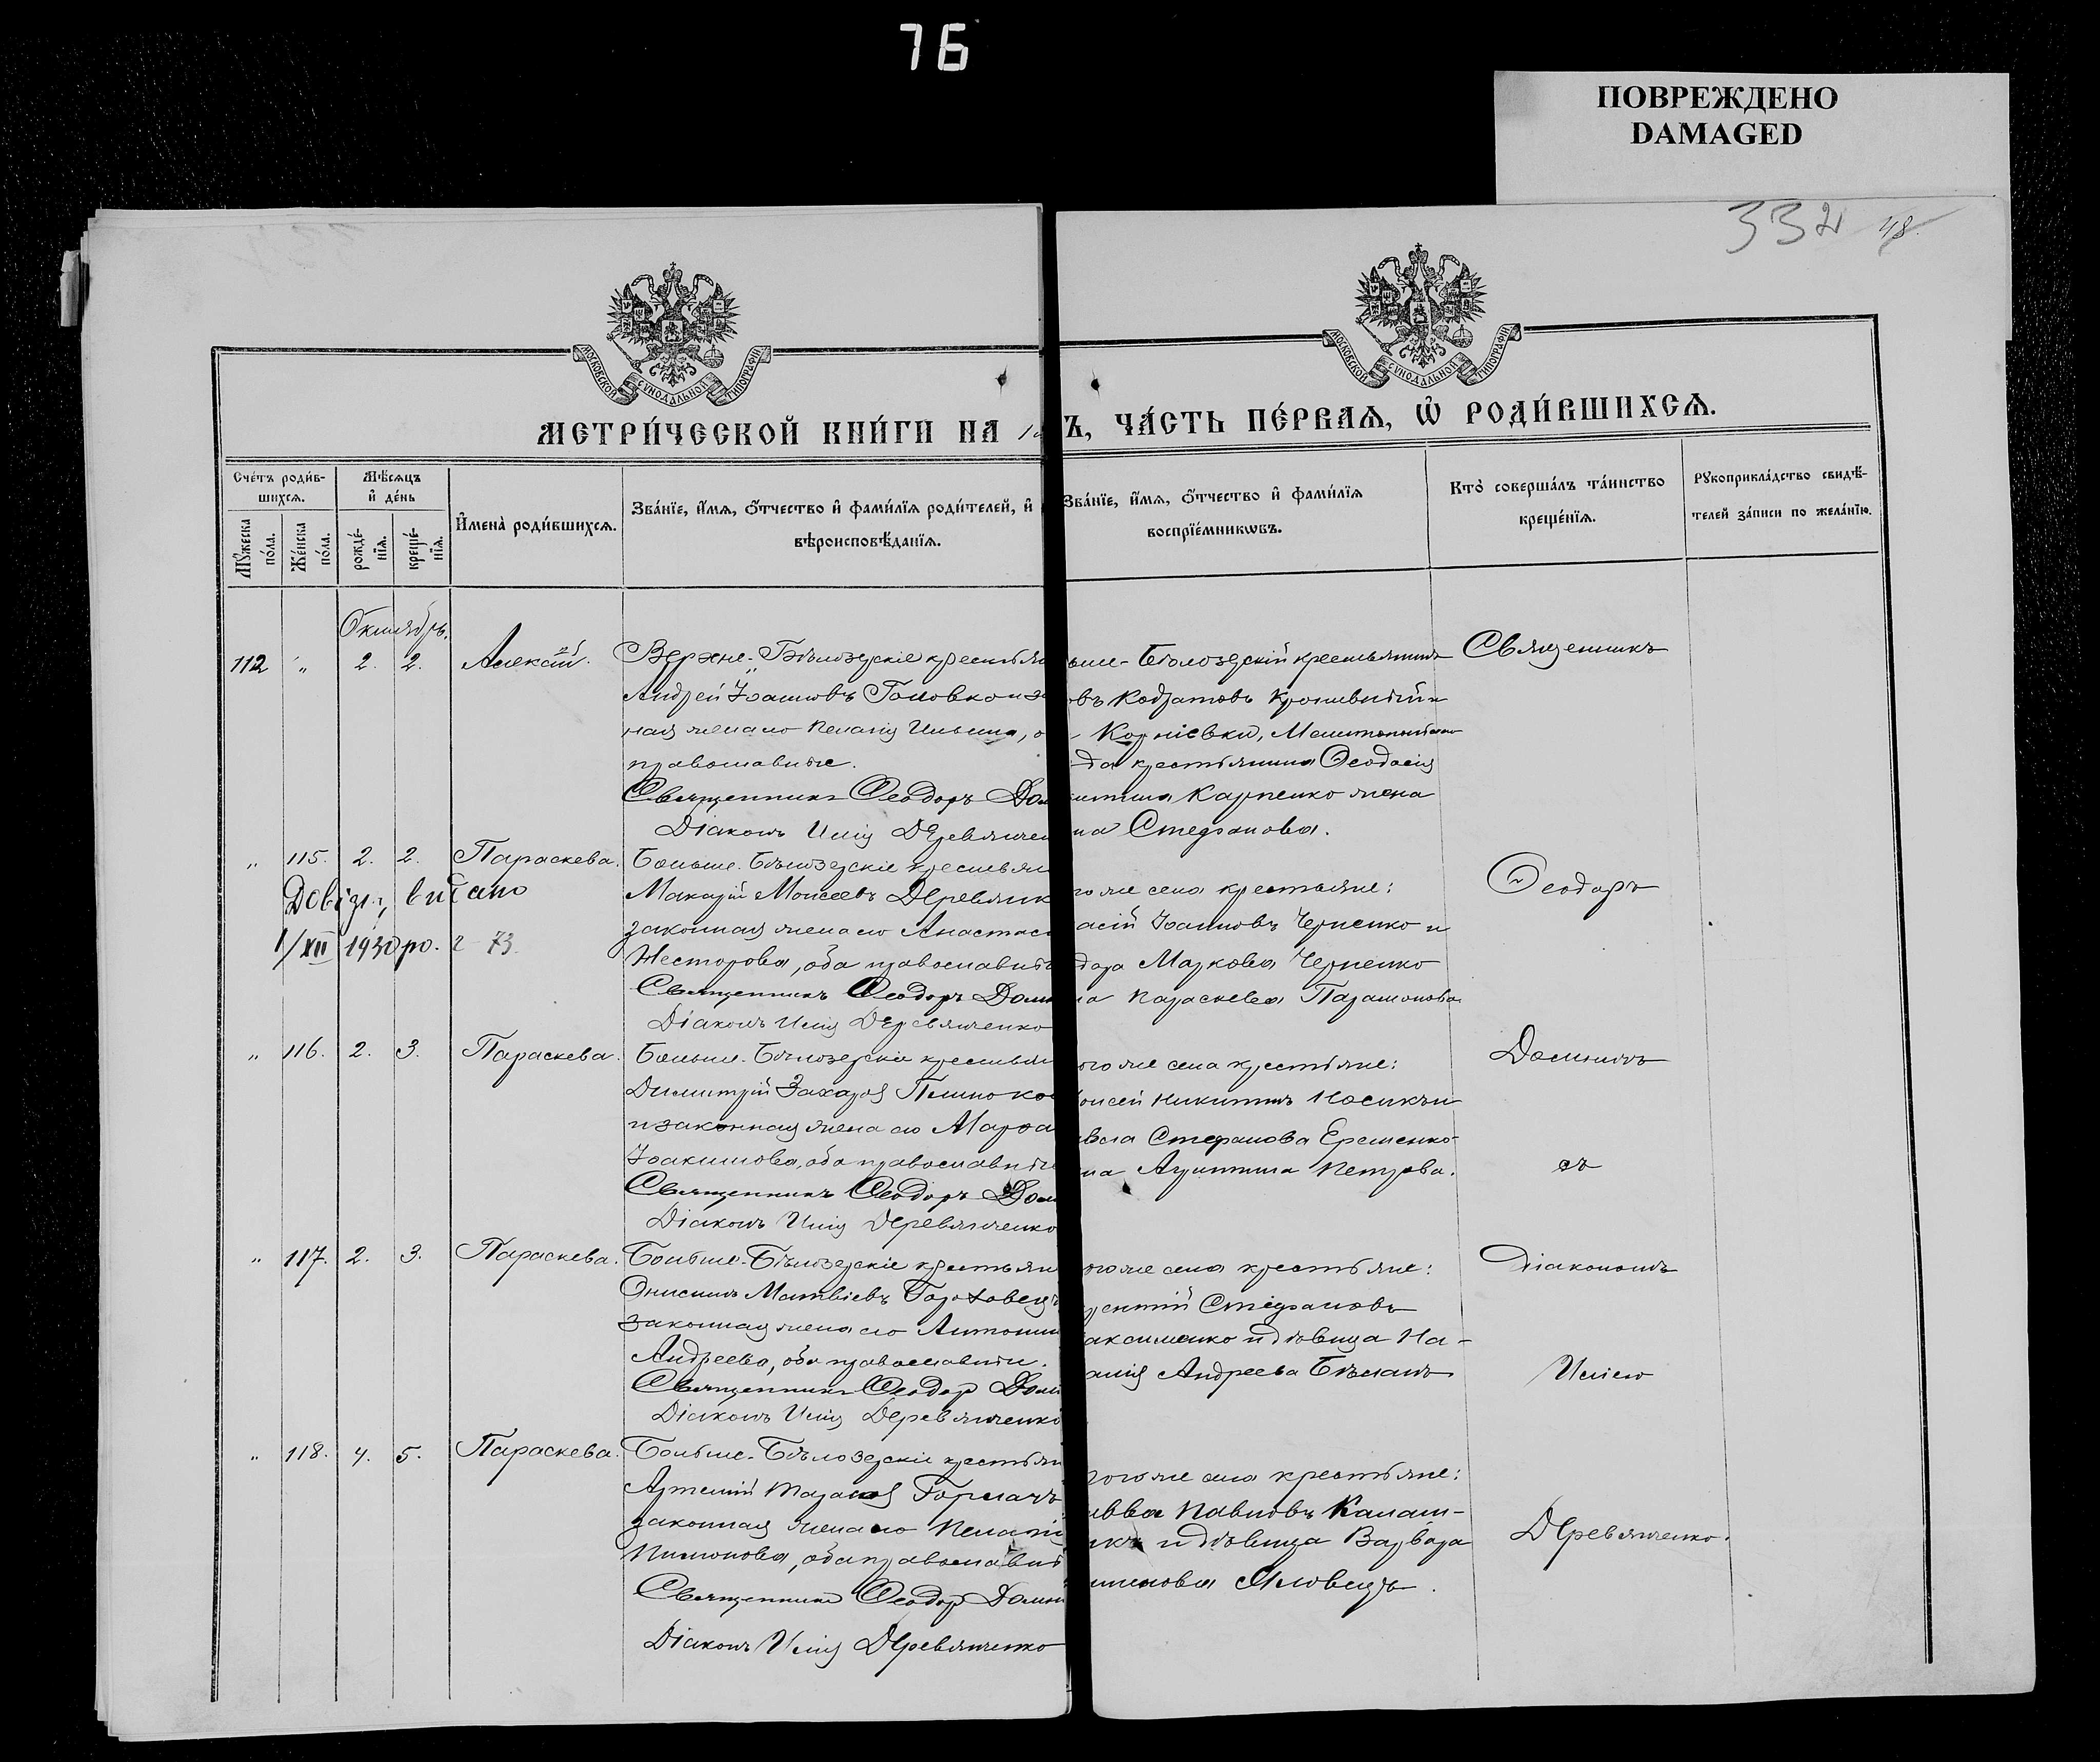 76
ПОВРЕЖДЕНО
DAMAGED
332 48.
МОСКОВСКОЙ СУНОДАЛЬНОЙ ТИПОГРАФІИ
МОСКОВСКОЙ СУНОДАЛЬНОЙ ТИПОГРАФІИ
МЕТРИ́ЧЕСКОЙ КНИ́ГИ НА 1
Ъ, ЧА́СТЬ ПЕ́РВАѦ, Ѡ҆ РОДИ́ВШИХСѦ.
Сче́тъ роди́в-
шихсѧ.
Мѣ́сѧцъ
и҆ де́нь
Мꙋ́жеска по́ла.
Же́нска по́ла.
рожде́-
нїѧ.
креще́-
нїѧ.
И҆мена̀ роди́вшихсѧ.
Зва́нїе, и҆́мѧ, ѻ҆́тчество и҆ фами́лїѧ роди́телей, и҆
вѣроисповѣ́данїѧ.
Зва́нїе, и҆́мѧ, ѻ҆́тчество и҆ фами́лїѧ
воспрїе́мникѡвъ.
Кто̀ соверша́лъ та́инство
креще́нїѧ.
Рꙋкоприкла́дство свидѣ́-
телей за́писи по жела́нїю.
Октябрь.
112 " 2. 2. Алексій.
Верхне-Бѣлозерскіе крестьян
Андрей Іоановъ Головко и за
ная жена его Пелагія Ильина, о
православные.
Священникъ Ѳеодоръ Дом
Діаконъ Илія Деревянчен
ьше-Бѣлозерскій крестьянинъ
овъ Кодратовъ Кропивный и
Корніевки, Мелитопольскаго
да крестьянина Ѳеодосія
Карпенко жена
на Стефанова.
Священникъ
" 115. 2. 2. Параскева.
Больше-Бѣлозерскіе крестьян
Макарій Моисеевъ Деревянк
законная жена его Анастасі
Несторова, оба православные
Священникъ Ѳеодоръ Доми
Діаконъ Илія Деревянченко
го же села крестьяне:
асій Іоанновъ Черненко и
дора Маркова Черненко
на Параскева Парамонова
Ѳеодоръ
1/XII 1930 р. 73
" 116. 2. 3. Параскева.
Больше-Бѣлозерскіе крестьян
Димитрій Захаровъ
и законная жена его Марѳа
Іоакимова, оба православные
Священникъ Ѳеодоръ Дом
Діаконъ Илія Деревянченко
ого же села крестьяне:
оисей Никитинъ Носикъ и
Стефанова Еременко
на Акилина Петрова.
Доминов
съ
" 117. 2. 3. Параскева.
Больше-Бѣлозерскіе крестьян
Онисимъ Матвіевъ Гороховец
законная жена его Антонин
Андреева, оба православные.
Священникъ Ѳеодоръ Доми
Діаконъ Илія Деревянченко
ого же села крестьяне:
Стефановъ
аксименко и дѣвица На-
алія Андреева Бѣланъ
Діакономъ
Иліею
" 118. 4. 5. Параскева.
Больше-Бѣлозерскіе крестьян
Артемій Тарасовъ Горпачъ
законная жена его Пелагія
Пимонова, оба православные
Священникъ Ѳеодоръ Доми
Діаконъ Илія Деревянченко
того же села крестьяне:
авва Павловъ Калаш-
икъ и дѣвица Варвара
Яловецъ.
Деревянченко.